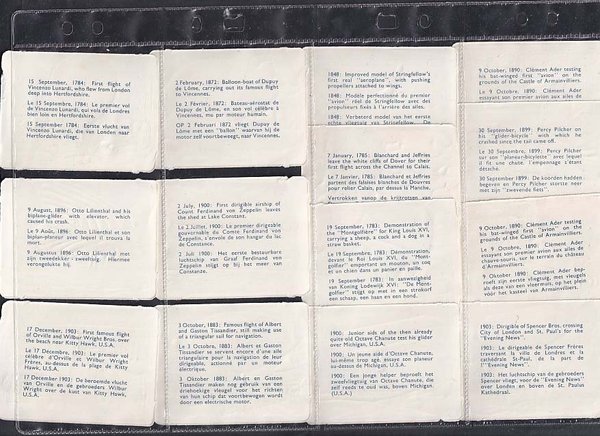 15 September, 1784: First flight of
Vincenzo Lunardi, who flew from London
deep into Hertfordshire.
Le 15 Septembre, 1784: Le premier vol de
Vincenzo Lunardi, qui vola de Londres
bien loin en Hertfordshire.
15 September, 1784: Eerste vlucht van
Vincenzo Lunardi, die van Londen naar
Hertfordshire vliegt.
2 February, 1872: Balloon-boat of Dupuy
de Lôme, carrying out its famous flight
to Vincennes.
Le 2 Février, 1872: Bateau-aérostat de
Dupuy de Lôme, en son vol célèbre à
Vincennes, mo par moteur humain.
OP 2 Februari 1872 vliegt Dupuy de
Lôme met een "ballon" waarvan hij de
motor zelf voortbeweegt, naar Vincennes.
1848: Improved model of Stringfellow's
first real "aeroplane", with pushing
propellers attached to wings.
1848: Modèle perfectionné du premier
"avion" réel de Stringfellow avec des
propulseurs fixés à l'arrière des ailes.
1848: Verbeterd model van het eerste
echte vliegtuig van Stringfellow. De
9 October, 1890: Clément Ader testing
his bat-winged first "avion" on the
grounds of the Castle of Armainvilliers.
Le 9 Octobre, 1890: Clément Ader
essayant son premier avion aux ailes de
7 January, 1785: Blanchard and Jeffries
leave the white cliffs of Dover for their
first flight across the Channel to Calais.
Le 7 Janvier, 1785: Blanchard et Jeffries
partent des falaises blanches de Douvres
pour relier Calais, par dessus la Manche.
Vertrokken vanop de krijtrotsen van
30 September, 1899: Percy Pilcher on
his "glider-bicycle" with which he
crashed since the tail came off.
Le 30 Septembre, 1899: Percy Pilcher
sur son "planeur-bicyclette" avec lequel
il fit une chute, l'empennage s'étant
détaché.
30 September 1899: De koorden hadden
begeven en Percy Pilcher stortte neer
met zijn "zwevende fiets".
9 August, 1896: Otto Lilienthal and his
biplane-glider with elevator, which
caused his crash.
Le 9 Août, 1896: Otto Lilienthal et son
biplan-planeur avec lequel il trouva la
mort.
9 Augustus 1896: Otto Lilienthal met
zijn tweedekker - zweeftuig. Hiermee
verongelukte hij.
2 July, 1900: First dirigible airship of
Count Ferdinand von Zeppelin leaves
the shed at Lake Constance.
Le 2 Juillet, 1900: Le premier dirigeable
gouvernable du Comte Ferdinand von
Zeppelin, s'envole de son hangar du lac
de Constance.
2 Juli 1900: Het eerste bestuurbare
luchtschip van Graaf Ferdinand von
Zeppelin stijgt op bij het meer van
Constanze.
19 September, 1783: Demonstration of
the "Montgolfière" for King Louis XVI,
carrying a sheep, a cock and a dog in a
straw basket.
Le 19 Septembre, 1783: Démonstration,
devant le Roi Louis XVI, du "Mont-
golfier" emportant un mouton, un coq
et un chien dans un panier en paille.
19 September 1783: In aanwezigheid
van Koning Lodewijk XVI: "De Mont-
golfier" stijgt op met in een strokorf
een schaap, een haan en een hond.
9 October, 1890: Clément Ader testing
his bat-winged first "avion" on the
grounds of the Castle of Armainvilliers.
Le 9 Octobre, 1890: Clément Ader
essayant son premier avion aux ailes de
chauve-souris, sur le terrain du château
d'Armainvilliers.
9 Oktober 1890: Clément Ader bep-
roeft zijn eerste vliegtuig, met vleugels
als deze van een vleermuis, op het plein
voor het kasteel van Armainvilliers.
17 December, 1903: First famous flight
of Orville and Wilbur Wright Bros. over
the beach near Kitty Hawk, U.S.A.
Le 17 Décembre, 1903: Le premier vol
célèbre d'Orville et Wilbur Wright
Frères, au-dessus de la plage de Kitty
Hawk, U.S.A.
17 December 1903: De beroemde vlucht
van Orville en de gebroeders Wilbur
Wright over de kust van Kitty Hawk,
U.S.A.
3 October, 1883: Famous flight of Albert
and Gaston Tissandier, still making use
of a triangular sail for navigation.
Le 3 Octobre, 1883: Albert et Gaston
Tissandier se servent encore d'une aile
triangulaire pour la navigation de leur
dirigeable, actionné par un moteur
électrique.
3 Oktober 1883: Albert en Gaston
Tissandier maken nog gebruik van een
driehoekige vleugel voor het richten
van hun schip dat voortbewogen wordt
door een electrische motor.
1900: Junior aids of the then already
quite old Octave Chanute test his glider
over Michigan, U.S.A.
1900: Un jeune aide d'Octave Chanute,
lui-même trop agé, essaye son planeur
au-dessus de Michigan, U.S.A.
1900: Een jonge helper beproeft het
zweefvliegtuig van Octave Chanute, die
zelf reeds te oud was, boven Michigan.
(U.S.A.)
1903: Dirigible of Spencer Bros. crossing
City of London and St. Paul's for the
"Evening News".
1903: Le dirigeable de Spencer Frères
traversant la ville de Londres et la
cathédrale St-Paul, de la part de
l'"Evening News".
1903: Het luchtschip van de gebroeders
Spencer vliegt, voor de "Evening News"
over Londen en boven de St. Paulus
Kathedraal.